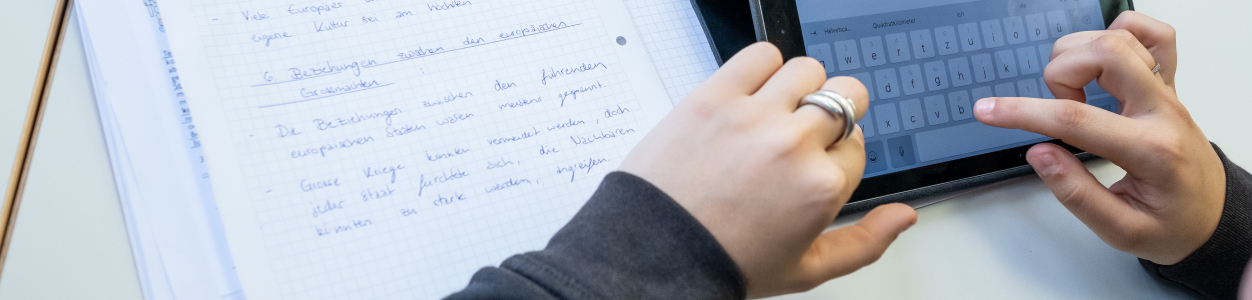 - Viele Europäer
eigene Kultur sei am höchsten
6. Beziehungen zwischen den europäischen
Grossmächten :
- Die Beziehungen zwischen den führenden
europäischen Staaten waren meistens gespannt.
- Grosse Kriege konnten vermeidet werden, doch
jeder Staat fürchtete sich, die Nachbaren
könnten zu stark werden, angreifen.
Quadratkilometer
w e r t z u i o p ü
d f g h j k l
x c v b